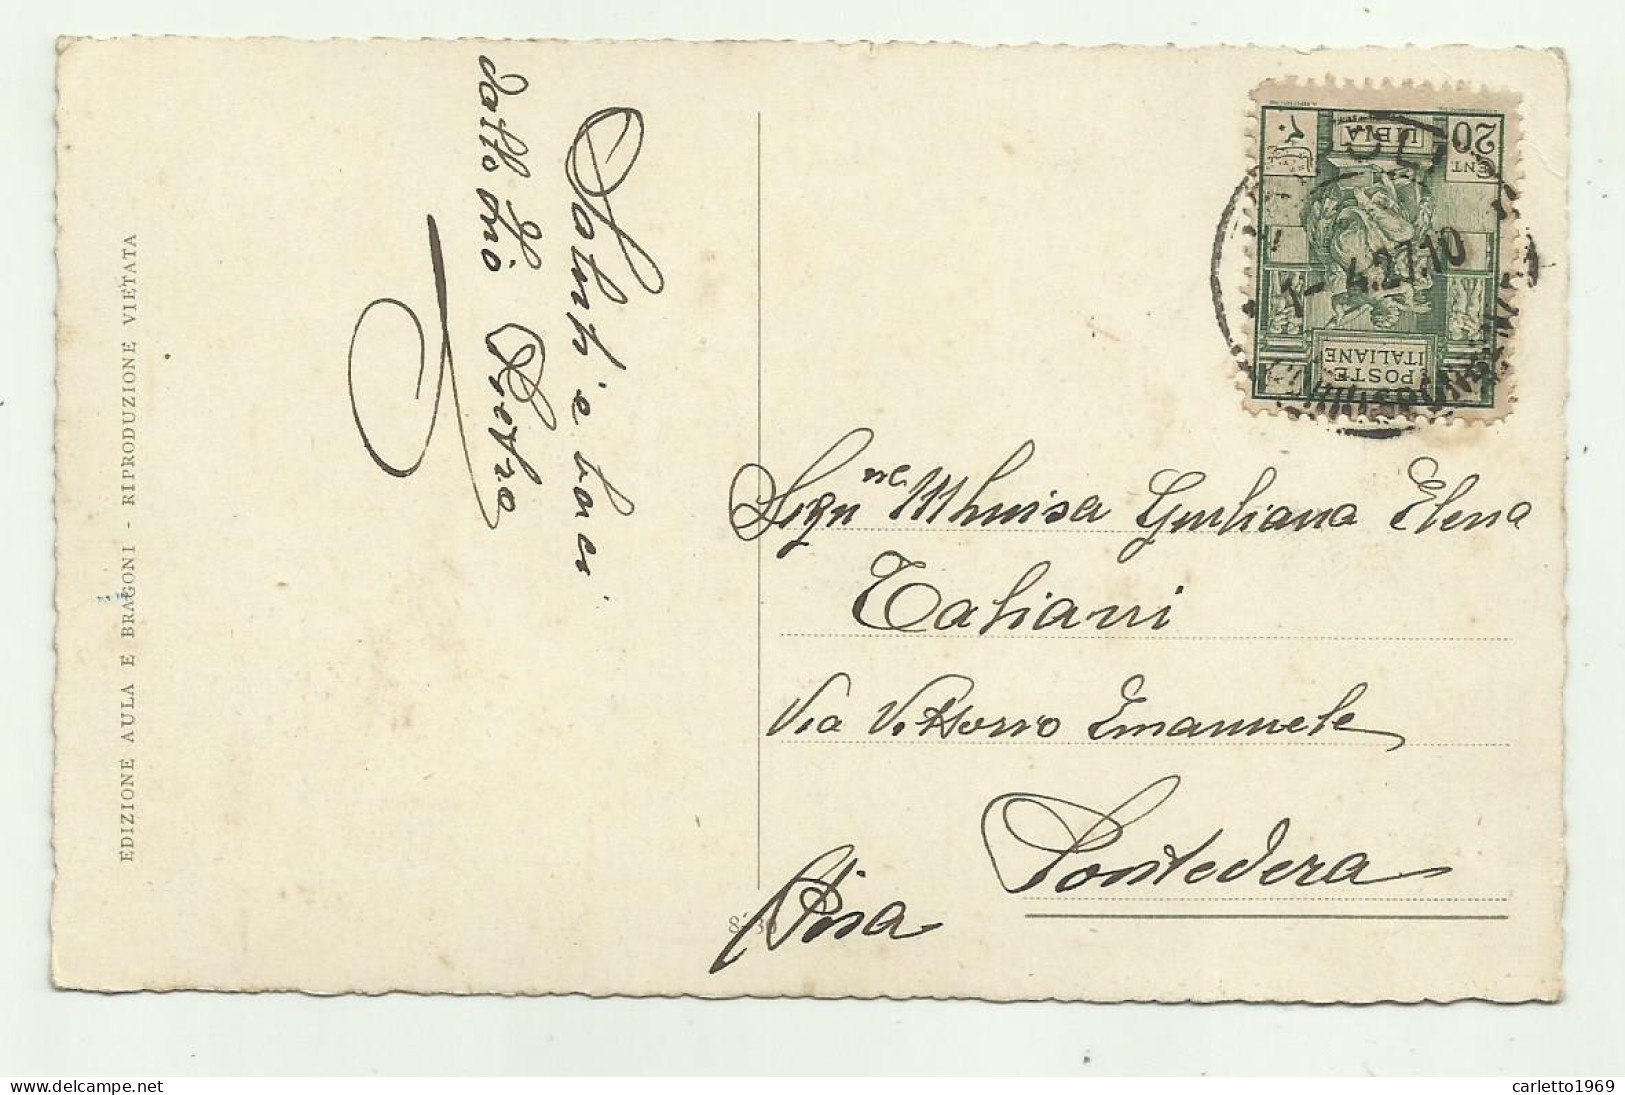 Saluti e baci
dallo zio Pietro
EDIZIONE AULA E BRAGONI - RIPRODUZIONE VIETATA
20
CENT
LIBIA
POSTE
ITALIANE
1-4.27.10
Sign.ne M Luisa Giuliana Elena
Taliani
Via Vittorio Emanuele
Pontedera
Pisa
carletto1969
www.delcampe.net